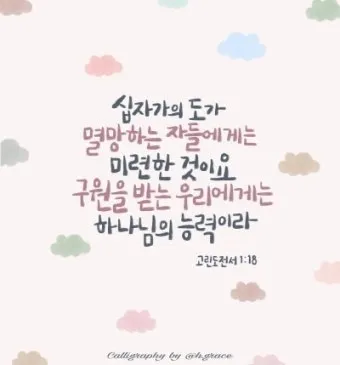 십자가의 도가
멸망하는 자들에게는
미련한 것이요
구원을 받는 우리에게는
하나님의 능력이라
고린도전서 1:18
Calligraphy by @h.grace